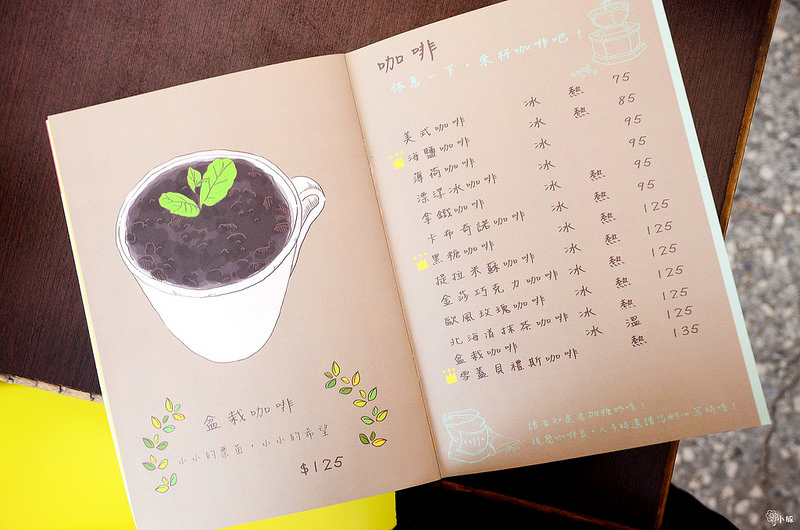 咖啡
休息一下，來杯咖啡吧！
美式咖啡 冰 熱 75
海鹽咖啡 冰 熱 85
薄荷咖啡 冰 95
漂浮冰咖啡 冰 95
拿鐵咖啡 冰 熱 95
卡布奇諾咖啡 冰 熱 95
黑糖咖啡 冰 熱 125
提拉米蘇咖啡 冰 熱 125
金莎巧克力咖啡 冰 熱 125
歐風玫瑰咖啡 冰 熱 125
北海道抹茶咖啡 冰 熱 125
盆栽咖啡 冰 溫 125
雪蓋貝禮斯咖啡 熱 135
請告知是否加糖奶喔！
現磨咖啡豆，人多時還請您耐心等待喔！
盆栽咖啡
小小的葉苗，小小的希望
$125
小腹